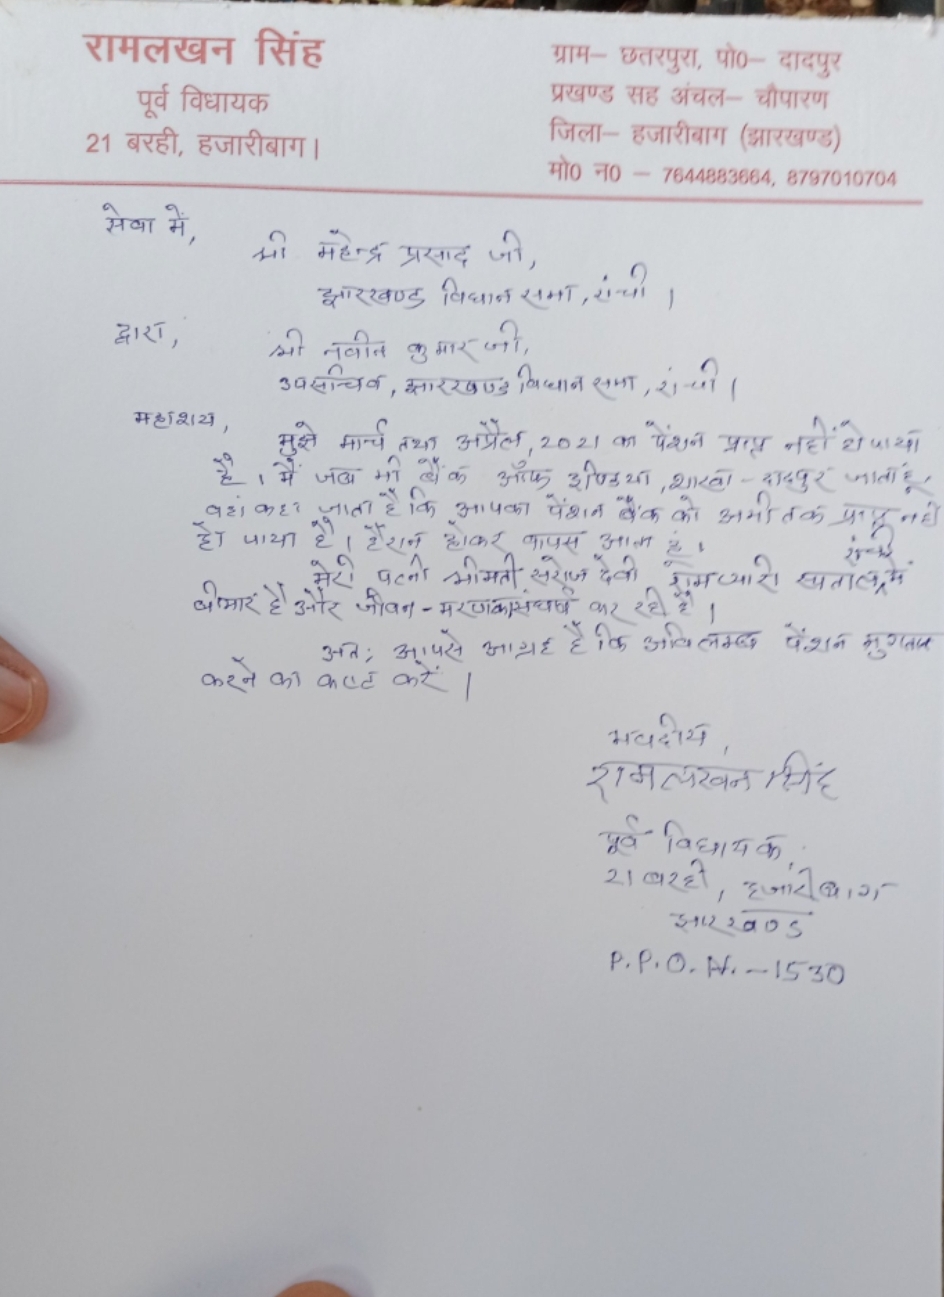 रामलखन सिंह
पूर्व विधायक
21 बरही, हजारीबाग।
ग्राम– छतरपुरा, पो०– दादपुर
प्रखण्ड सह अंचल– चौपारण
जिला– हजारीबाग (झारखण्ड)
मो० न० – 7644883664, 8797010704
सेवा में,
श्री महेन्द्र प्रसाद जी,
झारखण्ड विधान सभा, रांची।
द्वारा,
श्री नवीन कुमार जी,
उपसचिव, झारखण्ड विधान सभा, रांची।
महाशय,
मुझे मार्च तथा अप्रैल, 2021 का पेंशन प्राप्त नहीं हो पाया
है। मैं जब भी बैंक ऑफ इण्डिया, शाखा - दादपुर जाता हूं,
वहां कहा जाता है कि आपका पेंशन बैंक को अभी तक प्राप्त नहीं
हो पाया है। हैरान होकर वापस आता हूं।
मेरी पत्नी श्रीमती सरोज देवी रामप्यारी अस्पताल रांची में
बीमार हैं और जीवन - मरण का संघर्ष कर रही हैं।
अतः आपसे आग्रह है कि अविलम्ब पेंशन भुगतान
करने का कष्ट करें।
भवदीय,
रामलखन सिंह
पूर्व विधायक,
21 बरही, हजारीबाग
झारखण्ड
P.P.O. N. - 1530